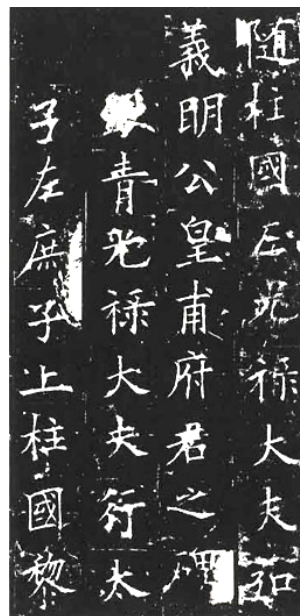 随柱國左光祿大夫弘
義明公皇甫府君之碑
銀青光祿大夫行太
子左庶子上柱國黎